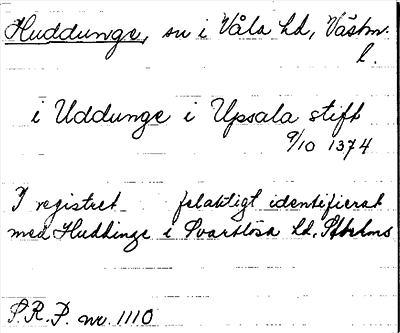 Huddunge, sn i Våla hd, Västm.
l.
i Uddunge i Upsala stift
9/10 1374
I registret felaktigt identifierat
med Huddinge i Svartlösa hd, Sthlms
S.R.P. nr. 1110